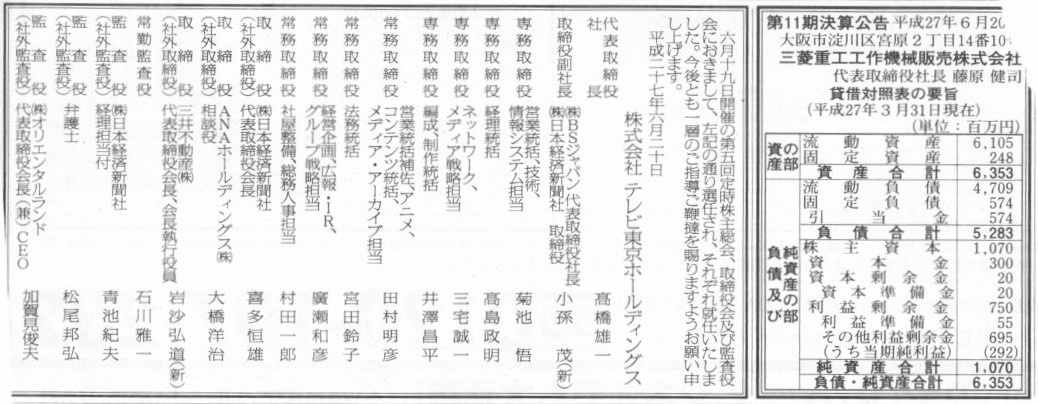 六月十九日開催の第五回定時株主総会、取締役会及び監査役
会におきまして、左記の通り選任され、それぞれ就任いたしま
した。今後とも一層のご指導ご鞭撻を賜りますようお願い申
し上げます。
平成二十七年六月二十日
株式会社 テレビ東京ホールディングス
代表取締役社長 髙橋雄一
取締役副社長 ㈱BSジャパン 代表取締役社長 ㈱日本経済新聞社 取締役 小孫 茂(新)
専務取締役 営業統括、技術、情報システム担当 菊池 悟
専務取締役 経理統括 髙島政明
専務取締役 ネットワーク、メディア戦略担当 三宅誠一
専務取締役 編成、制作統括 井澤昌平
常務取締役 営業統括補佐、アニメ、コンテンツ統括、メディア・アーカイブ担当 田村明彦
常務取締役 法務統括 宮田鈴子
常務取締役 経営企画、広報・IR、グループ戦略担当 廣瀬和彦
常務取締役 社屋整備、総務人事担当 村田一郎
取締役(社外取締役) ㈱日本経済新聞社 代表取締役会長 喜多恒雄
取締役(社外取締役) ANAホールディングス㈱ 相談役 大橋洋治
取締役(社外取締役) 三井不動産㈱ 代表取締役会長、会長執行役員 岩沙弘道(新)
常勤監査役 石川雅一
監査役(社外監査役) ㈱日本経済新聞社 経理担当付 青池紀夫
監査役(社外監査役) 弁護士 松尾邦弘
監査役(社外監査役) ㈱オリエンタルランド 代表取締役会長(兼)CEO 加賀見俊夫
第11期決算公告 平成27年6月20
大阪市淀川区宮原2丁目14番10
三菱重工工作機械販売株式会社
代表取締役社長 藤原 健司
貸借対照表の要旨
(平成27年3月31日現在)
(単位:百万円)
資産の部
流動資産 6,105
固定資産 248
資産合計 6,353
負債及び純資産の部
流動負債 4,709
固定負債 574
引当金 574
負債合計 5,283
株主資本 1,070
資本金 300
資本剰余金 20
資本準備金 20
利益剰余金 750
利益準備金 55
その他利益剰余金 695
(うち当期純利益) (292)
純資産合計 1,070
負債・純資産合計 6,353